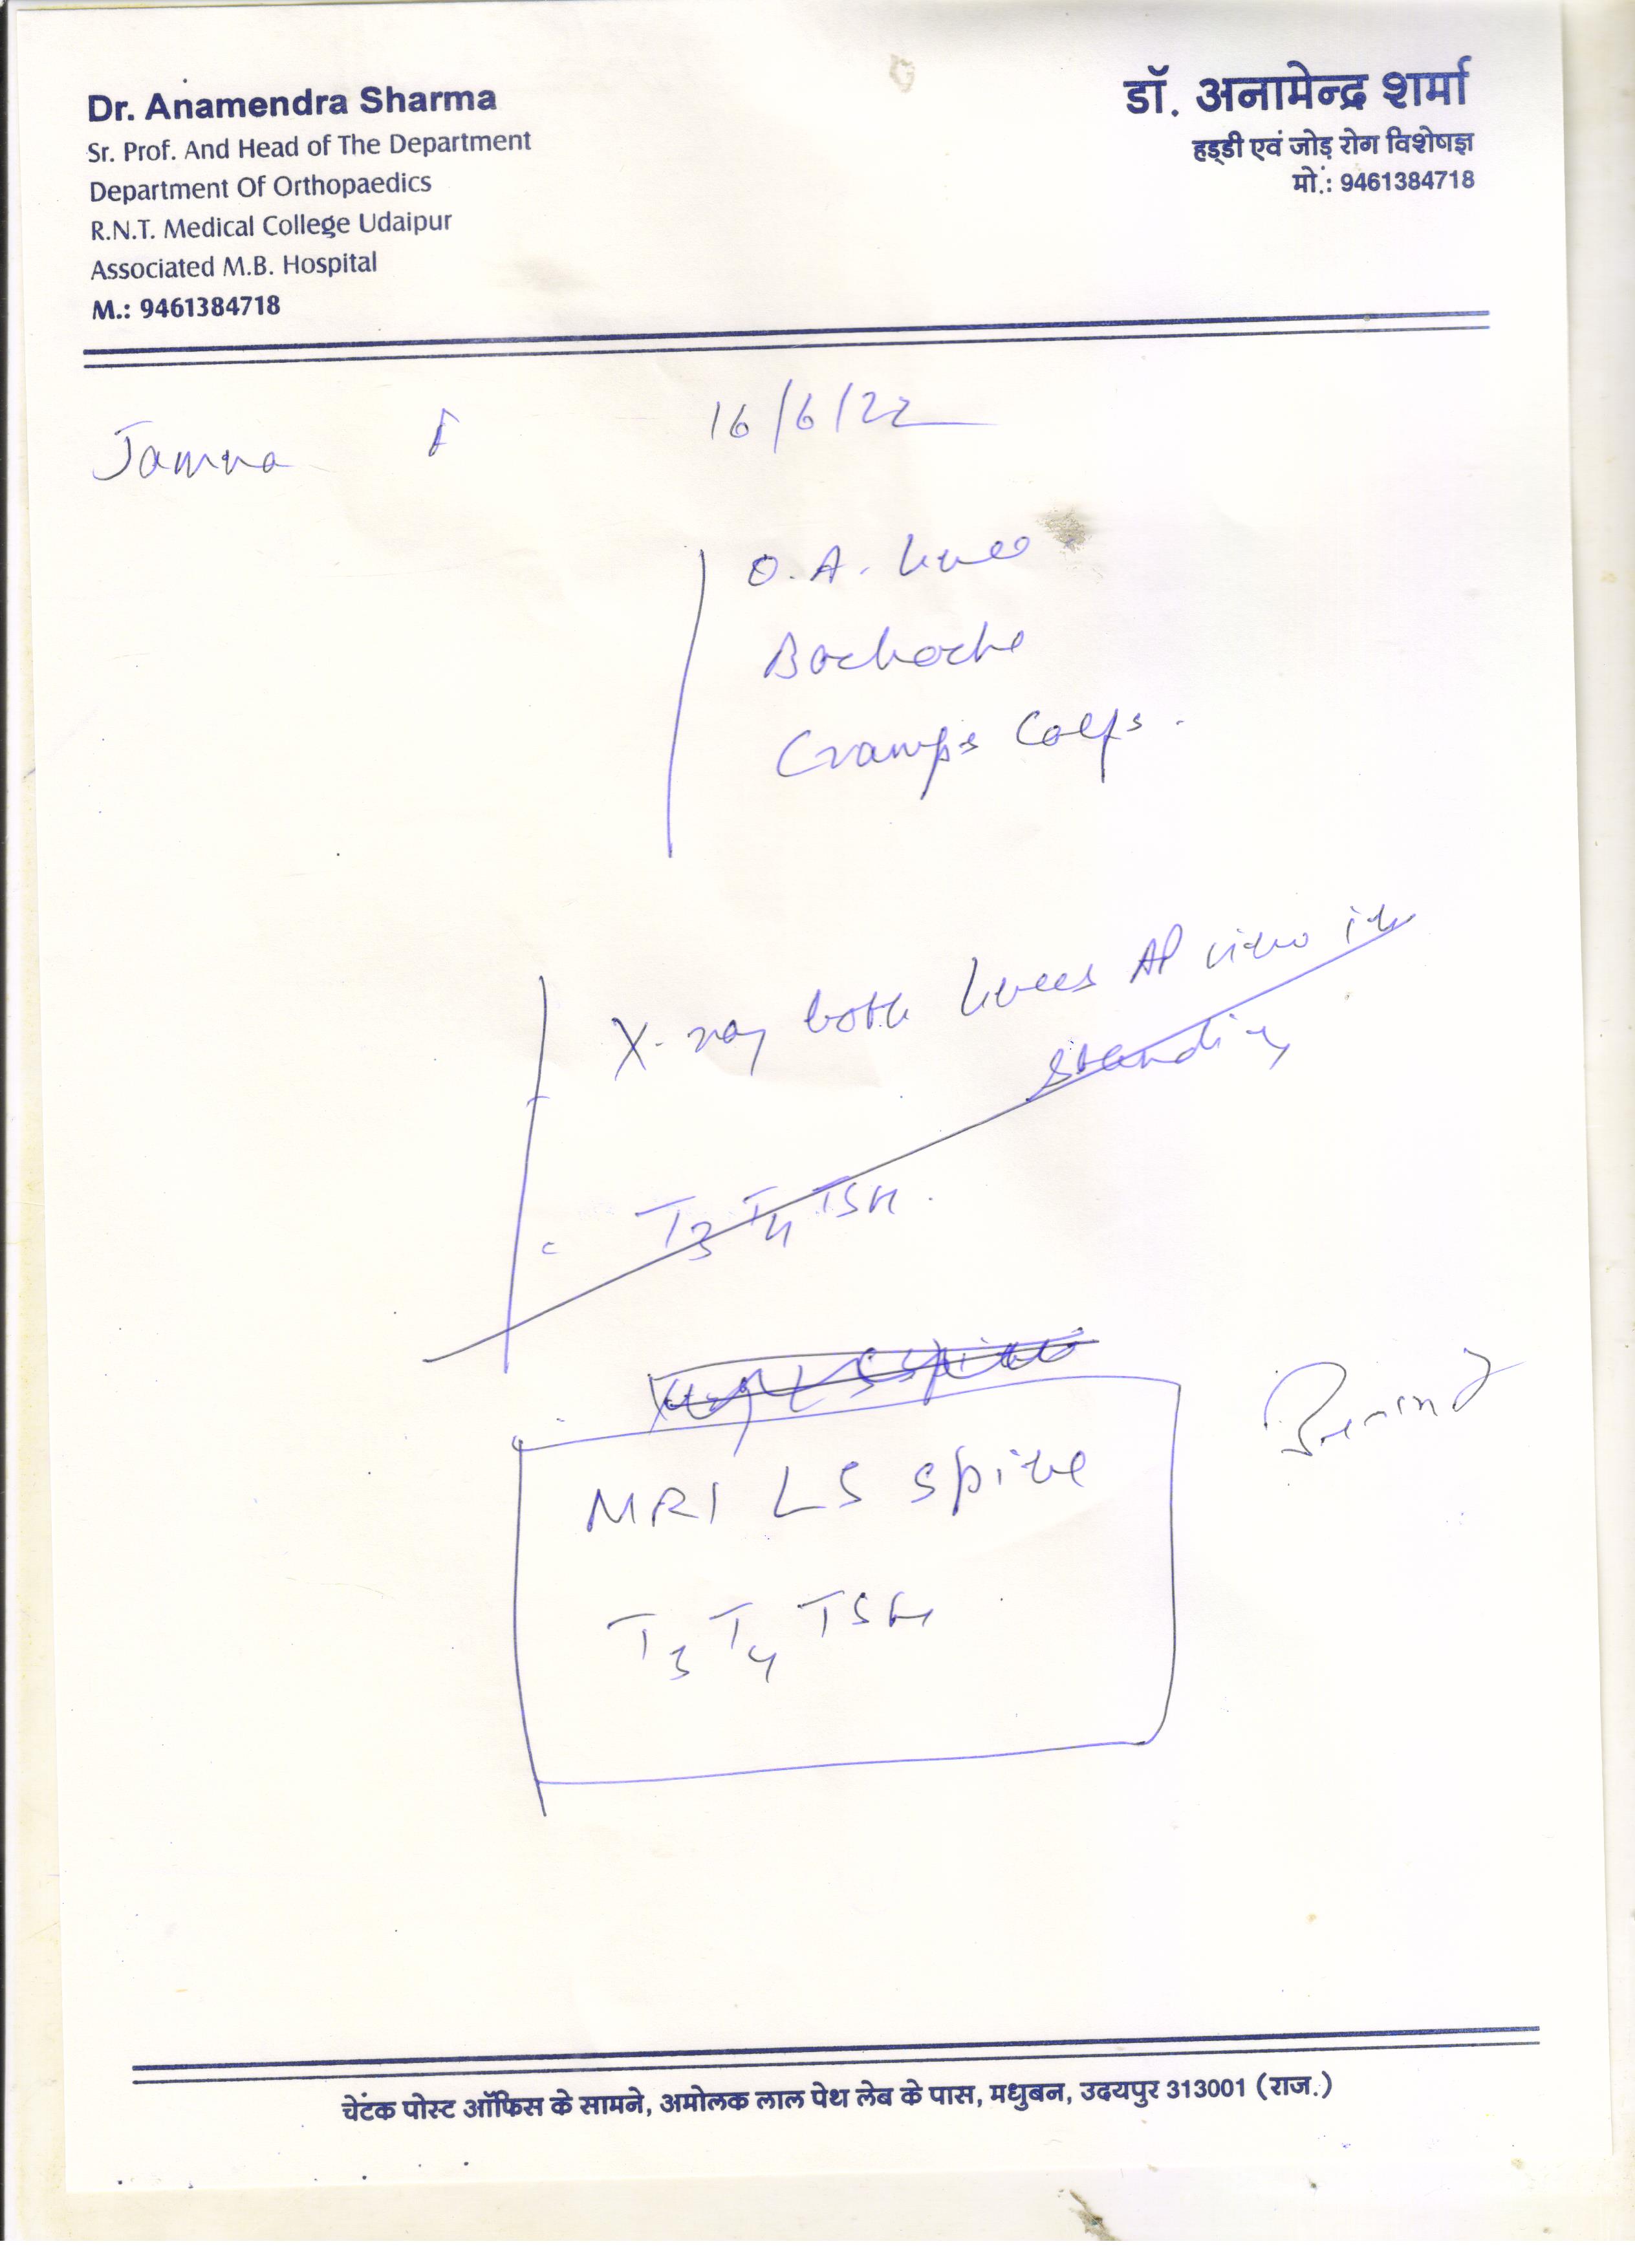 Dr. Anamendra Sharma
Sr. Prof. And Head of The Department
Department Of Orthopaedics
R.N.T. Medical College Udaipur
Associated M.B. Hospital
M.: 9461384718
डॉ. अनामेन्द्र शर्मा
हड्डी एवं जोड़ रोग विशेषज्ञ
मो.: 9461384718
Jamna F 16/6/22
O.A. knee
Backache
Cramps Calfs.
X-ray both knees AP view in
standing
T3 T4 TSH.
LS spine
MRI LS spine
T3 T4 TSH
चेटंक पोस्ट ऑफिस के सामने, अमोलक लाल पेथ लेब के पास, मधुबन, उदयपुर 313001 (राज.)